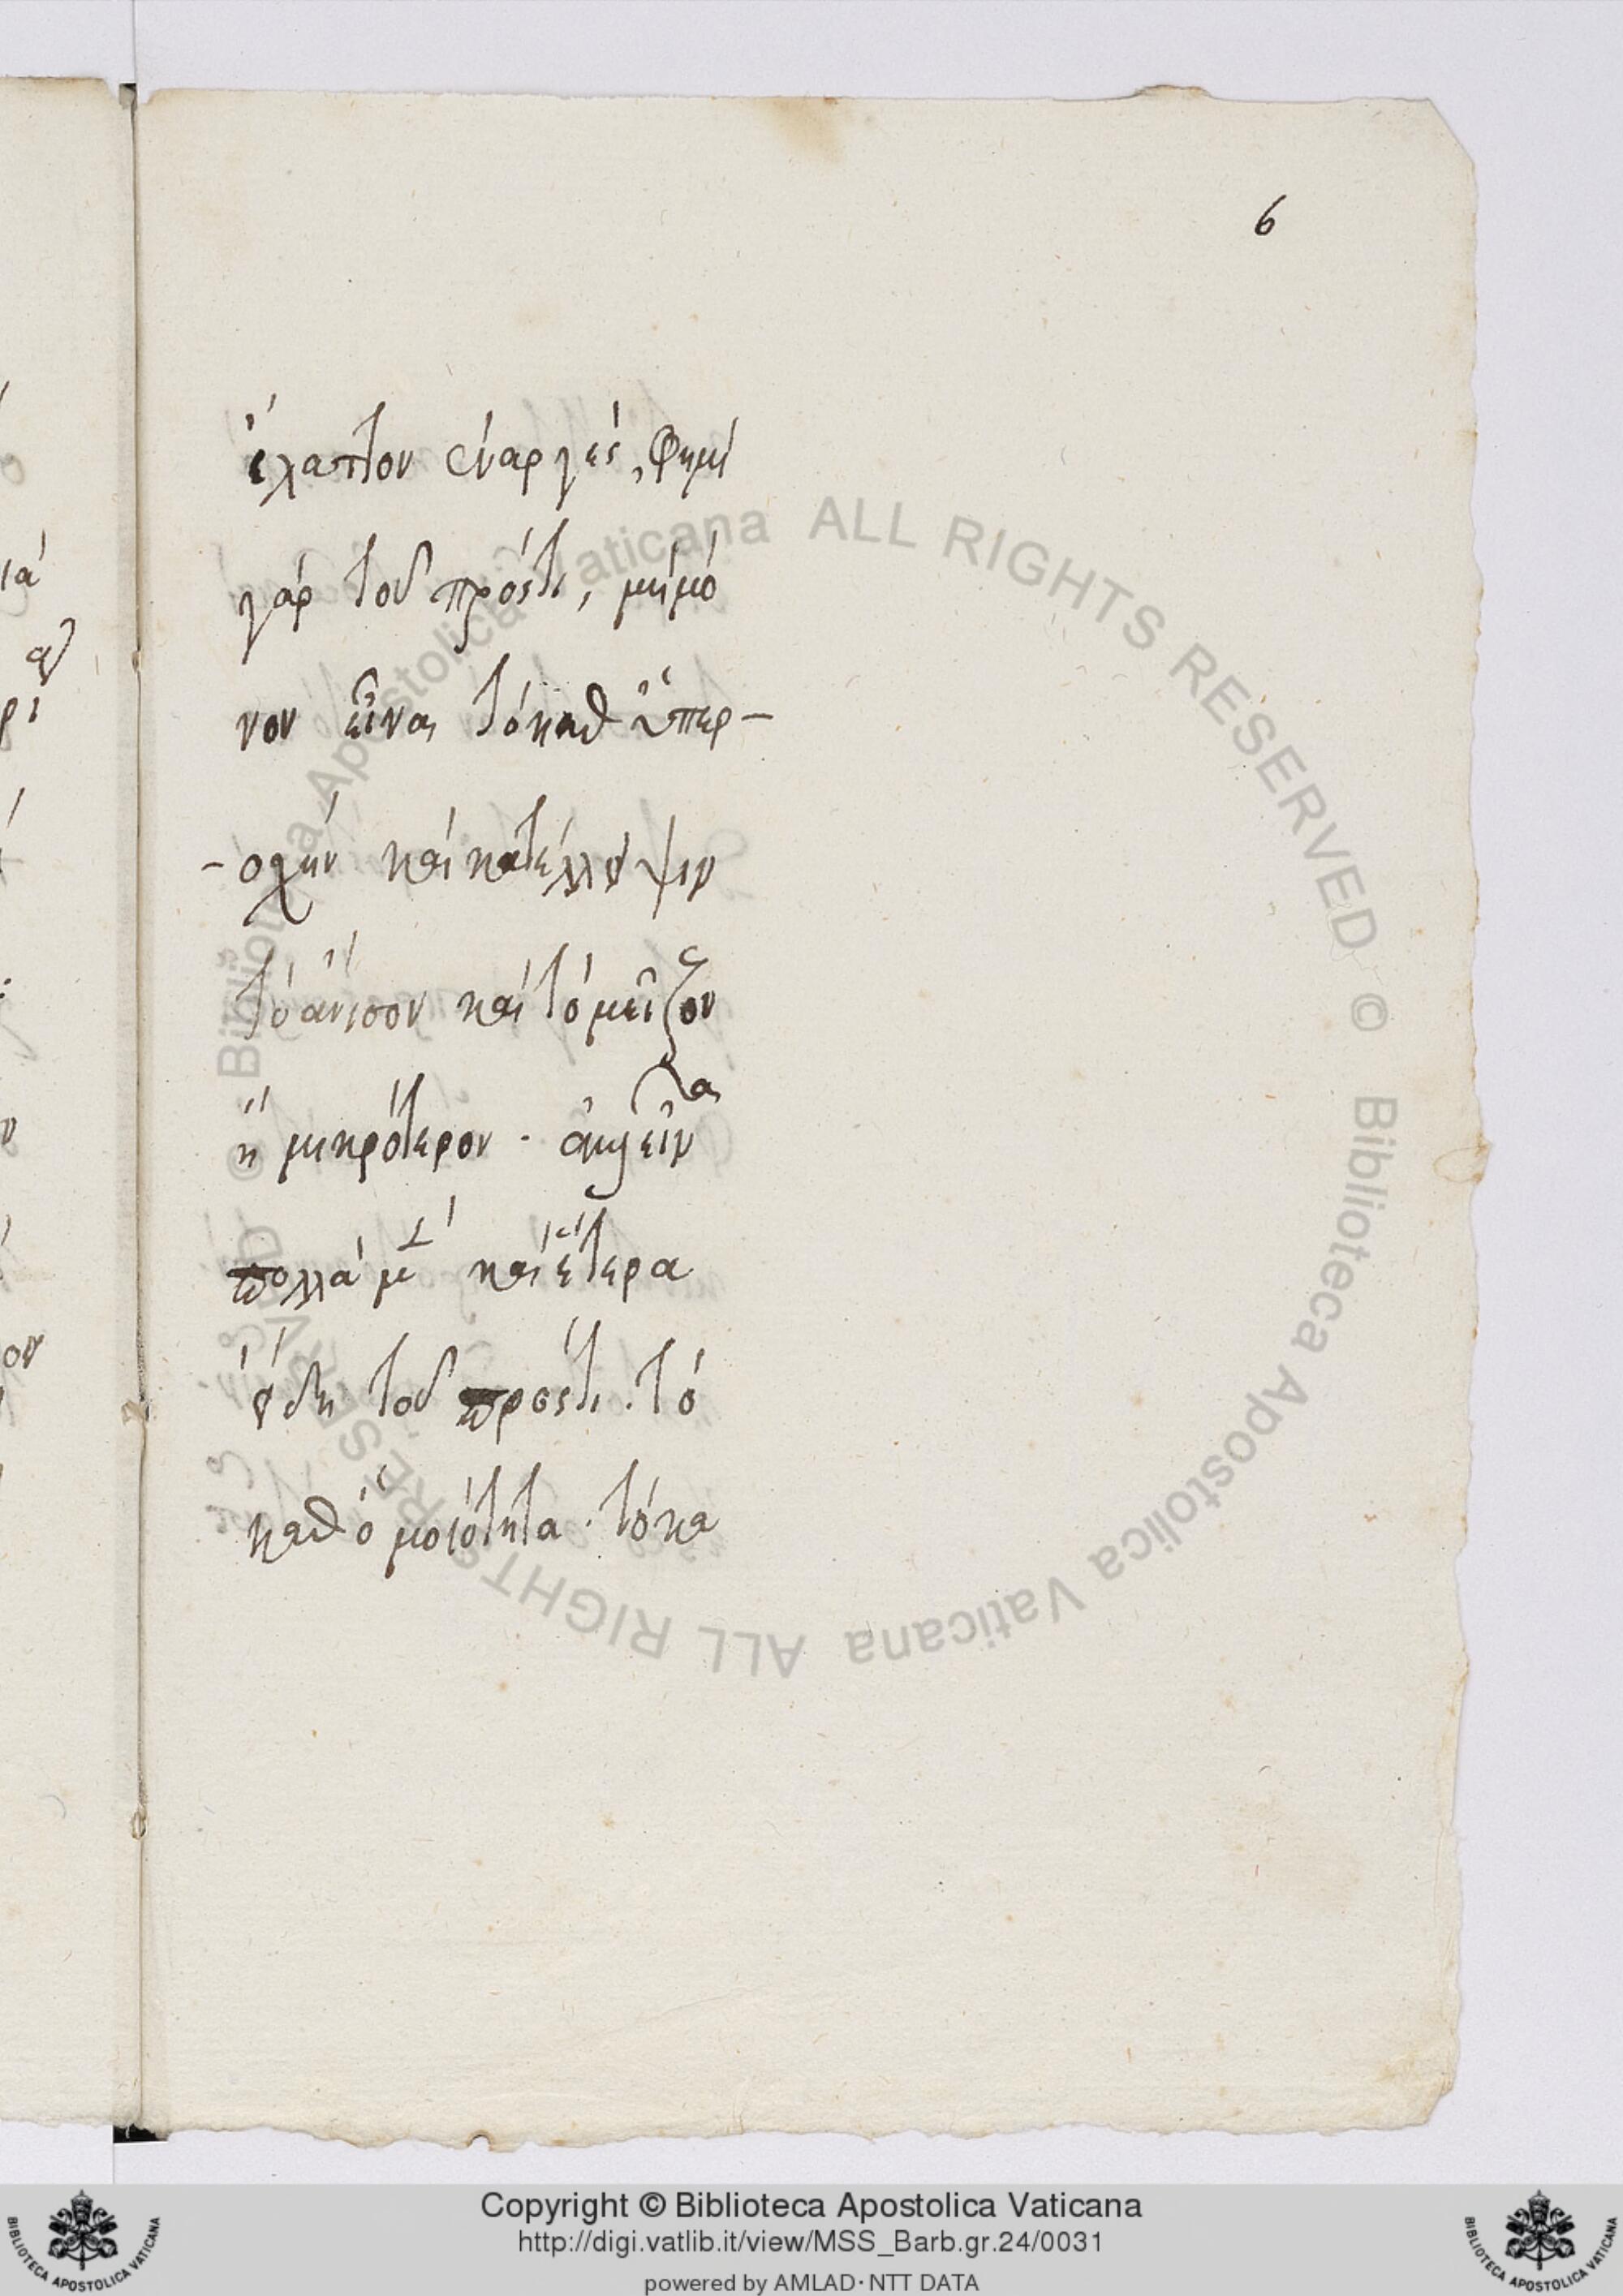 6
ἔλαττον ἐναργές, φημί
γάρ τοῦ πρόςτι, μήμό
νον εἶναι τό καθ ὑπερ-
-οχήν καί κατέλλειψιν
τό ἄνισον καί τό μεῖζον
ἤ μικρότερον.
πολλά καί ἕτερα
εἴδη τοῦ πρόςτι. τό
καθ ὁμοιότητα. τό κα
© Biblioteca Apostolica Vaticana ALL RIGHTS RESERVED © Biblioteca Apostolica Vaticana ALL RIGHTS RESERVED
Copyright © Biblioteca Apostolica Vaticana
http://digi.vatlib.it/view/MSS_Barb.gr.24/0031
powered by AMLAD·NTT DATA
BIBLIOTECA APOSTOLICA VATICANA
BIBLIOTECA APOSTOLICA VATICANA